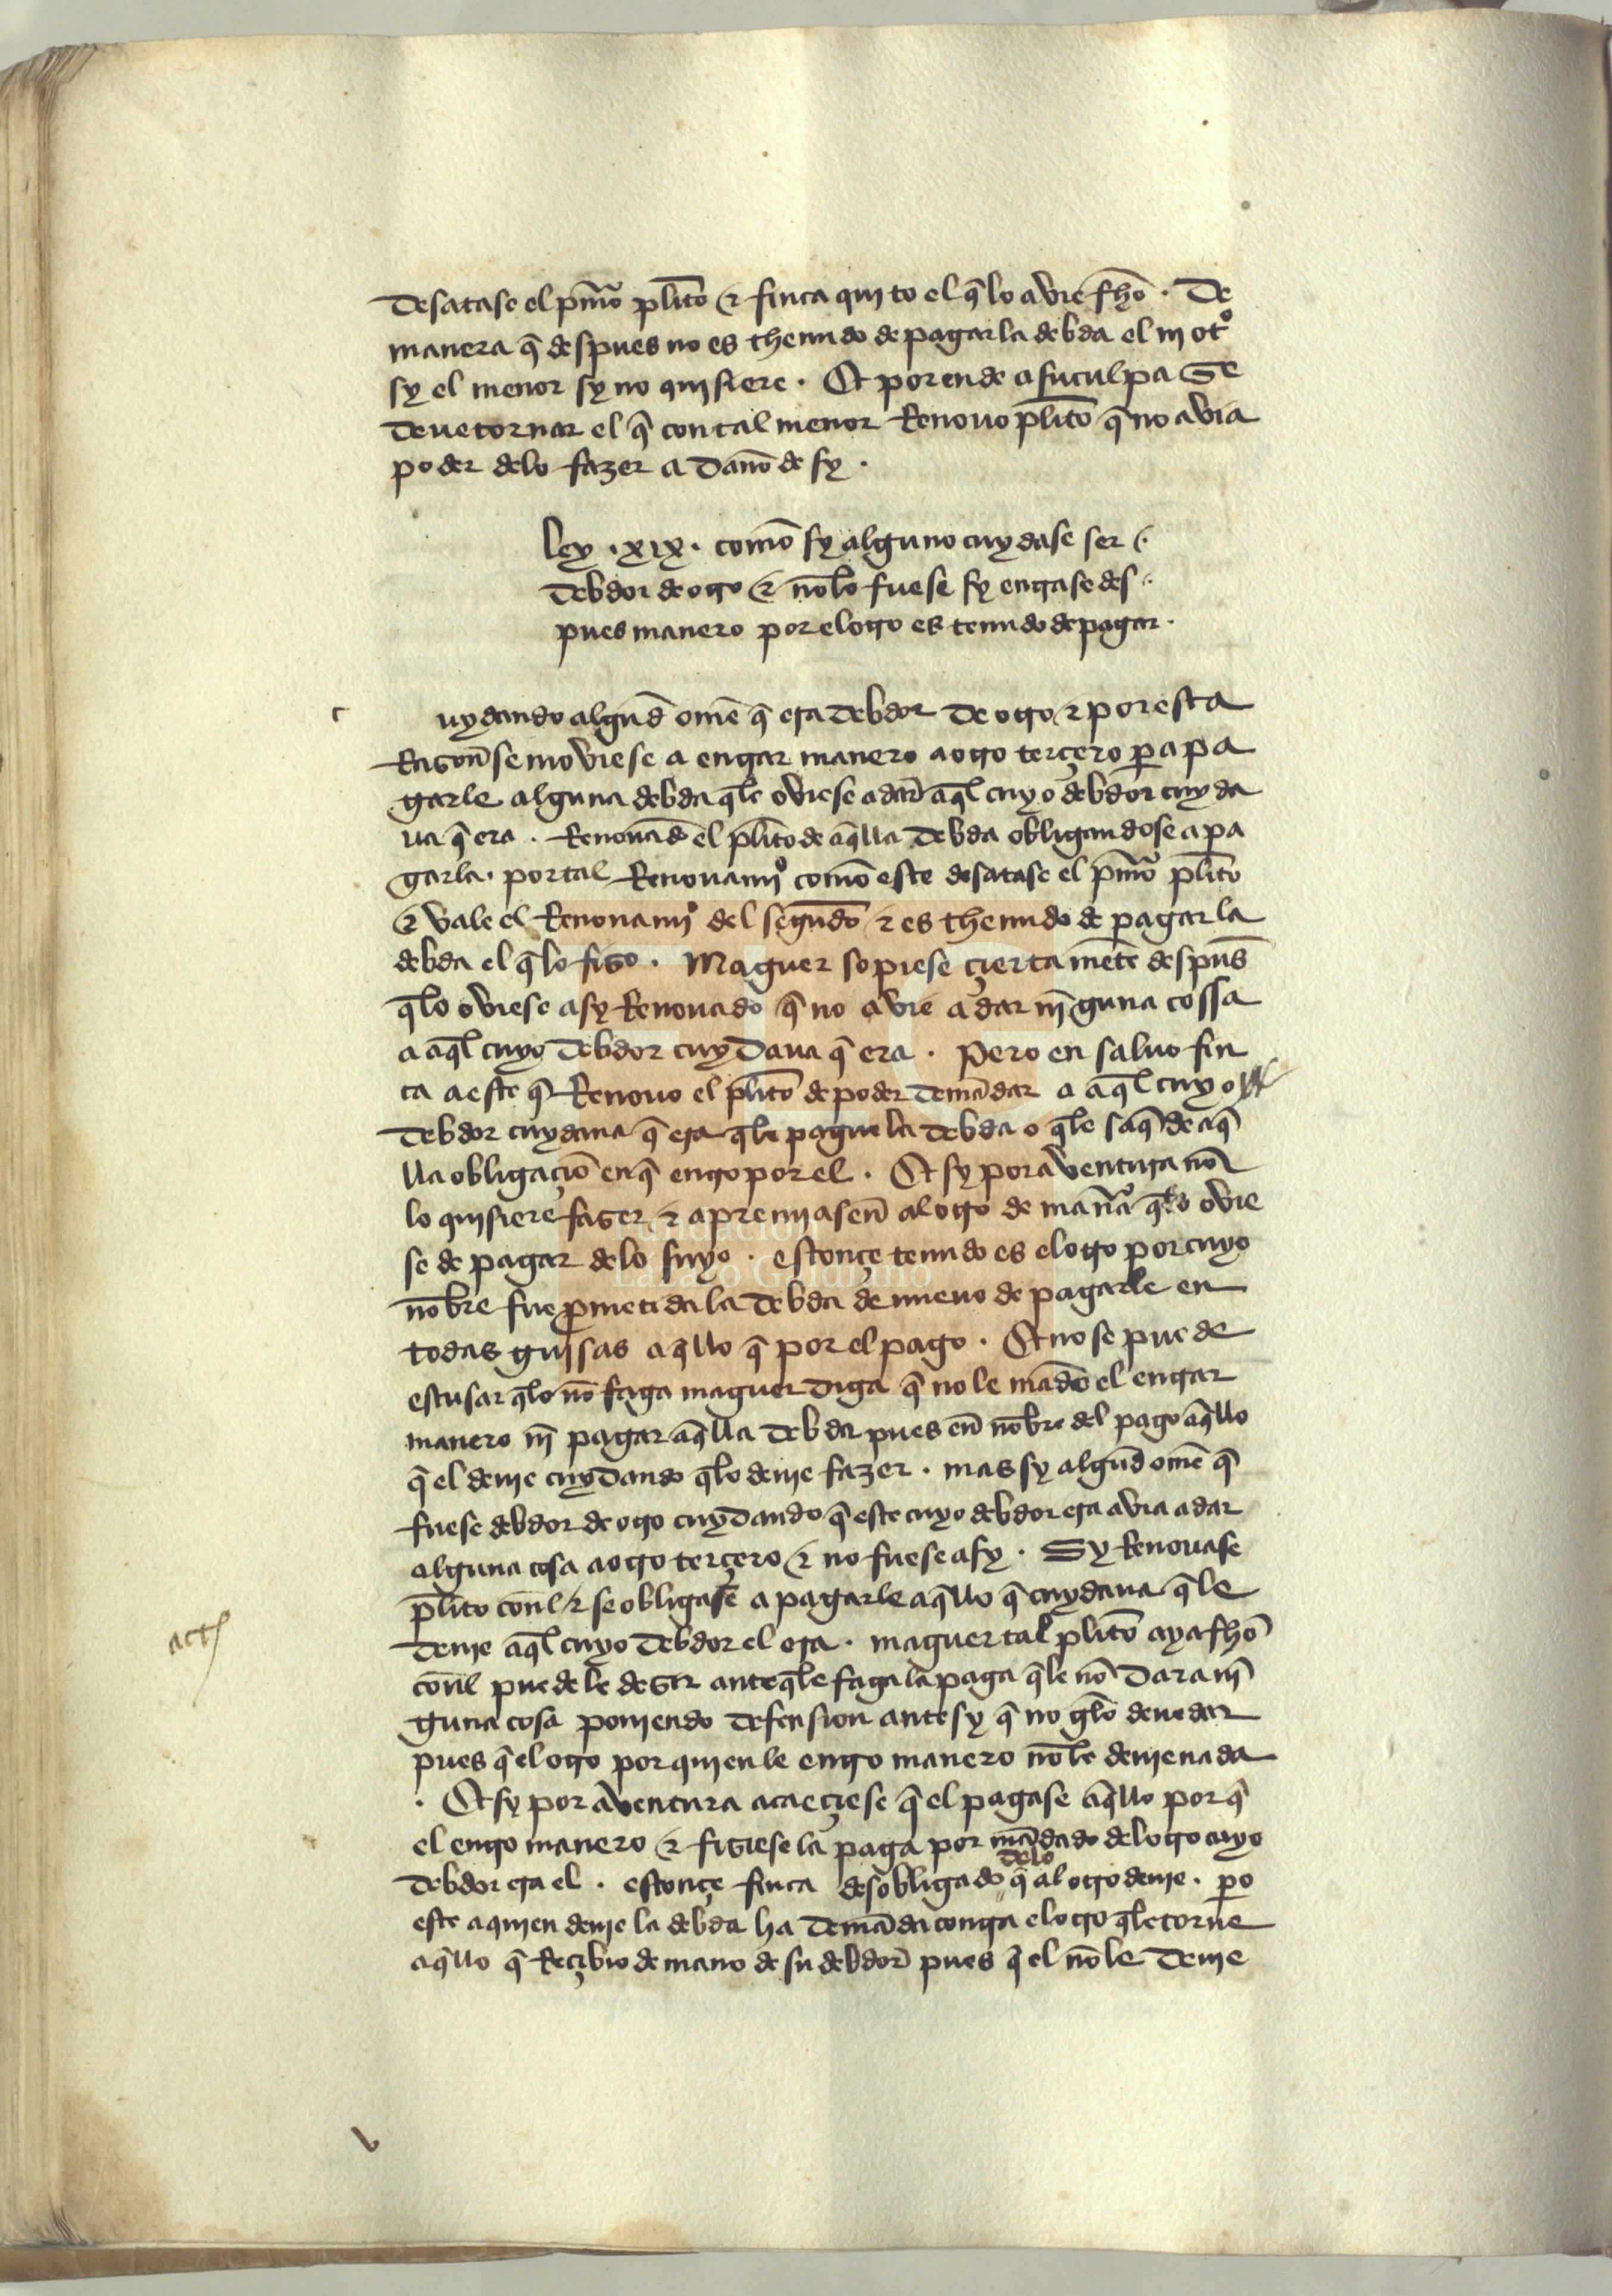 desatase el pmo plito & finca quito el q̃ lo avie fho . De
manera q̃ despues no es thenudo de pagar la debda el nj otº
sy el menor sy no quisiere . Et por ende a su culpa Se
deue tornar el q̃ con tal menor Renouo plito q̃ no avia
poder de lo fazer a dano de sy .
Ley . xix . como sy alguno cuydase ser
debdor de otro & nõ lo fuese sy entrase des
pues manero por el otro es tenudo de pagar .
c
uydando algũd ome q̃ era debdor de otro & por esta
Razon se moviese a entrar manero a otro terçero para pa
garle alguna debda q̃le oviese a dar aq̃l cuyo debdor cuyda
ua q̃ era . Renouãdo el plito de aq̃lla debda obligandose a pa
garla . por tal Renouamjº como este desatase el pmo plito
& vale el Renouamjº del segundo & es thenudo de pagar la
debda el q̃ lo fiso . Maguer sopiese çierta mẽte despus
q̃ lo oviese asy Renouado q̃ no avie a dar njguna cossa
a aq̃l cuyo debdor cuydaua q̃ era . Pero en saluo fin
ca a este q̃ Renouo el plito de poder demãdar a aq̃l cuyo
debdor cuydaua q̃ era q̃le pague la debda o q̃le saq̃ de aq̃
lla obligaçiõ en q̃ entro por el . Et sy por aventura nõ
lo quisiere faser & apremiasen al otro de manª q̃ lo ovie
se de pagar de lo suyo . estonçe tenudo es el otro por cuyo
nõbre fue pmetida la debda de nueuo de pagarle en
todas guisas aq̃llo q̃ por el pago . Et no se puede
escusar q̃ lo nõ faga maguer diga q̃ no le mãdo el entrar
manero nj pagar aq̃lla debda pues en nõbre del pago aq̃llo
q̃ el deuje cuydando q̃ lo deuje fazer . mas sy algũd ome q̃
fuese debdor de otro cuydando q̃ este cuyo debdor era avia a dar
alguna cosa a otro terçero & no fuese asy . Sy Renouase
plito conl & se obligase a pagarle aq̃llo q̃ cuydaua q̃le
deuje aq̃l cuyo debdor el era . maguer tal plito aya fho
conl puede le deser ante q̃le faga la paga q̃le nõ dara nj
guna cosa ponjendo defension ante sy q̃ no gelo deue dar
pues q̃ el otro por quien le entro manero nõ le deuje nada
. Et sy por aventura acaeçiese q̃ el pagase aq̃llo por q̃
el entro manero & fisiese la paga por mãdado del otro cuyo
debdor era el . estonçe finca desobligado delo q̃ al otro deuje . pо
este a quien deuje la debda ha demãda contra el otro q̃le torne
aq̃llo q̃ Reçibio de mano de su debdor pues q̃ el nõ le deuje